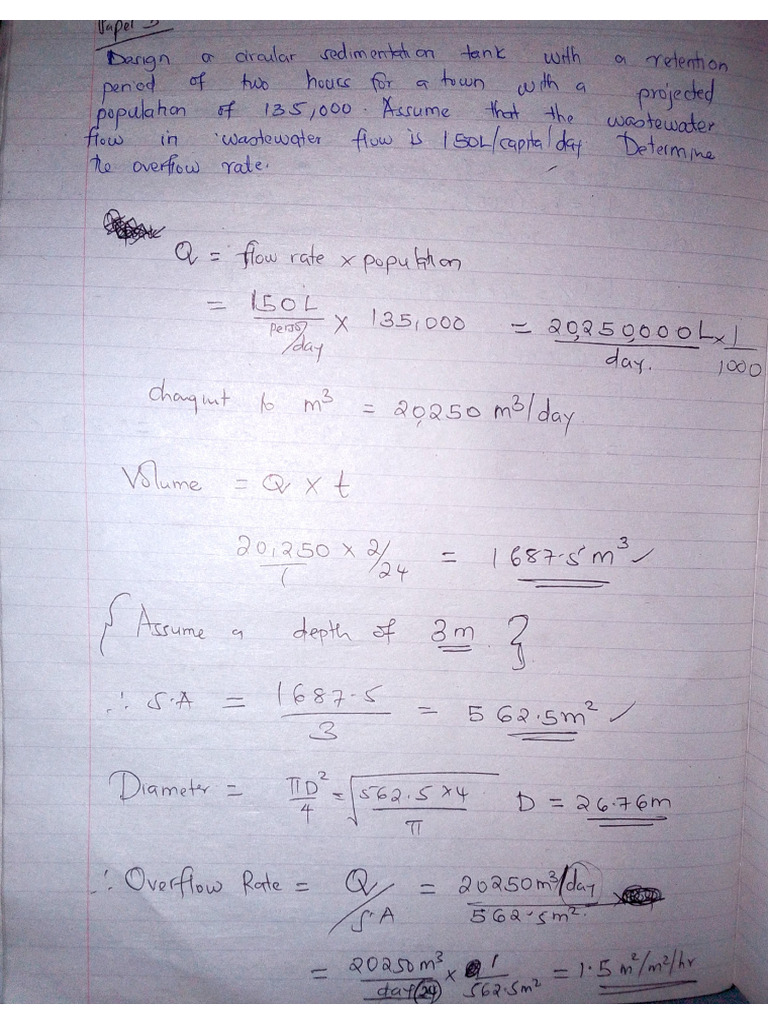 Paper 3
Design a circular sedimentation tank with a retention
period of two hours for a town with a projected
population of 135,000. Assume that the wastewater
flow in wastewater flow is 150L/capita/day. Determine
the overflow rate.
Q = flow rate x population
= 150L / person/day x 135,000 = 20,250,000L / day. x 1/1000
m³ = 20,250 m³/day
Volume = Q x t
20,250/1 x 2/24 = 1687.5m³ ✓
{Assume a depth of 3m.}
∴ S.A = 1687.5/3 = 562.5m² ✓
Diameter = πD²/4 = √(562.5x4/π) D = 26.76m
∴ Overflow Rate = Q/S.A = 20250m³/day / 562.5m²
= 20250m³ / day(24) x 1/562.5m² = 1.5 m²/m²/hr